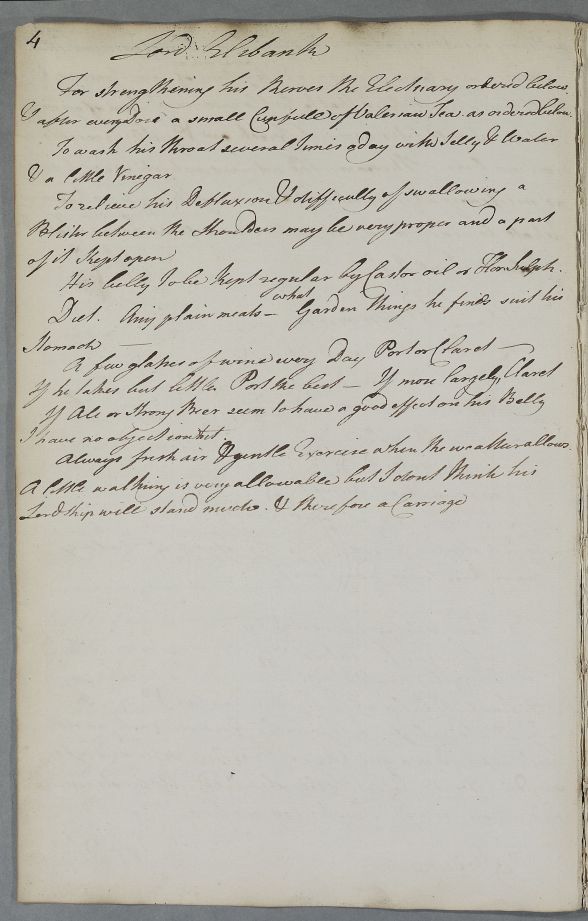 4
Lord Elibank
For strengthening his Nerves the Electuary ordered below
& after every Dose a small Cupfull of Valerian Tea as ordered below.
To wash his throat several times a day with Jelly & Water
& a little Vinegar
To relieve his Defluxion & difficulty of swallowing a
Blister between the shoulders may be very proper and a part
of it kept open
His belly to be kept regular by Castor oil or Flor Sulph.
Diet. Any plain meats — what Garden things he finds suit his
Stomach —
A few glasses of wine every Day Port or Claret —
If he takes but little Port the best — If more largely, Claret
If Ale or strong Beer seem to have a good effect on his Belly
I have no object to it
Always fresh air & gentle Exercise when the weather allows.
A little walking is very allowable but I dont think his
Lordship will stand much. & therefore a Carriage